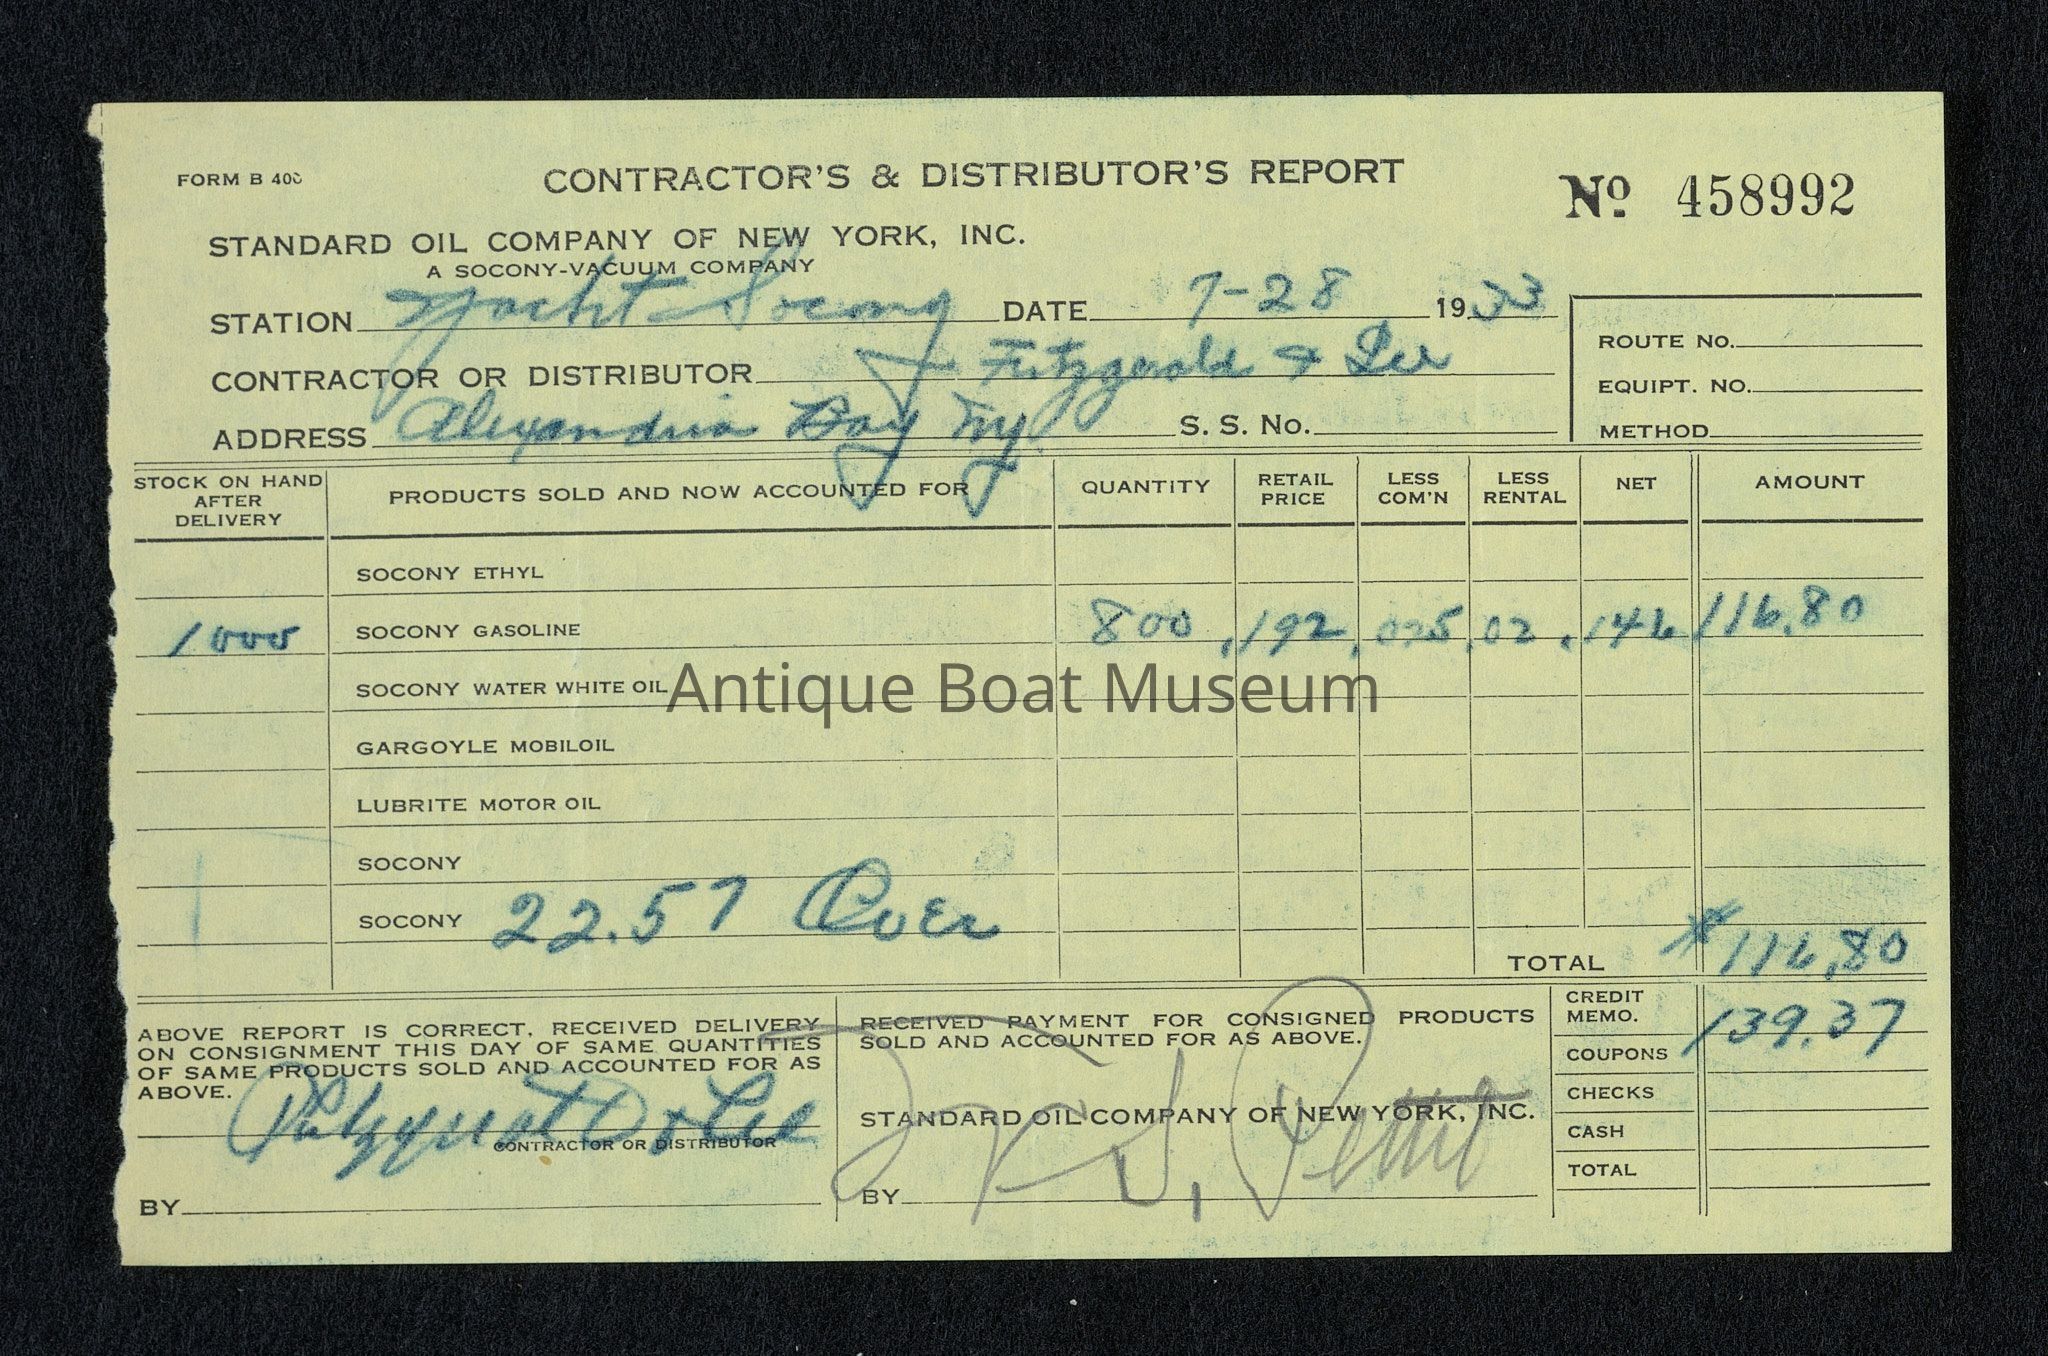 FORM B 400
CONTRACTOR'S & DISTRIBUTOR'S REPORT
No 458992
STANDARD OIL COMPANY OF NEW YORK, INC.
A SOCONY-VACUUM COMPANY
STATION Yacht Socony DATE 7-28 1933
CONTRACTOR OR DISTRIBUTOR Fitzgerald & Lee
ADDRESS Alexandria Bay Ny S. S. No.
ROUTE NO.
EQUIPT. NO.
METHOD
STOCK ON HAND AFTER DELIVERY PRODUCTS SOLD AND NOW ACCOUNTED FOR QUANTITY RETAIL PRICE LESS COM'N LESS RENTAL NET AMOUNT
SOCONY ETHYL
1000 SOCONY GASOLINE 800 .192 .025 .02 .146 116.80
SOCONY WATER WHITE OIL
Antique Boat Museum
GARGOYLE MOBILOIL
LUBRITE MOTOR OIL
SOCONY
SOCONY 22.57 Over
TOTAL $116.80
ABOVE REPORT IS CORRECT, RECEIVED DELIVERY
ON CONSIGNMENT THIS DAY OF SAME QUANTITIES
OF SAME PRODUCTS SOLD AND ACCOUNTED FOR AS
ABOVE.
Fitzgerald & Lee
CONTRACTOR OR DISTRIBUTOR
BY
RECEIVED PAYMENT FOR CONSIGNED PRODUCTS
SOLD AND ACCOUNTED FOR AS ABOVE.
STANDARD OIL COMPANY OF NEW YORK, INC.
BY
CREDIT MEMO. 139.37
COUPONS
CHECKS
CASH
TOTAL